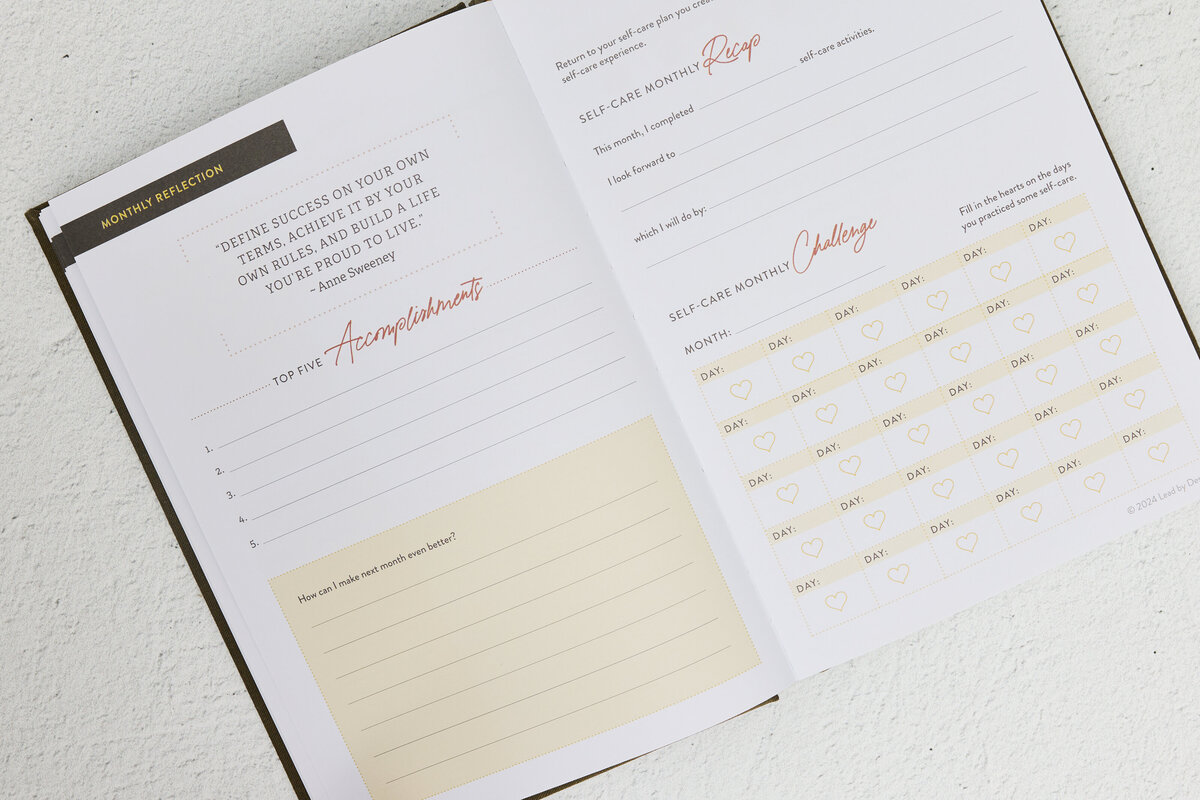 MONTHLY REFLECTION
“DEFINE SUCCESS ON YOUR OWN
TERMS, ACHIEVE IT BY YOUR
OWN RULES, AND BUILD A LIFE
YOU’RE PROUD TO LIVE.”
~ Anne Sweeney
TOP FIVE Accomplishments
1.
2.
3.
4.
5.
How can I make next month even better?
Return to your self-care plan you
self-care experience.
SELF-CARE MONTHLY Recap
This month, I completed self-care activities.
I look forward to
which I will do by:
SELF-CARE MONTHLY Challenge
Fill in the hearts on the days
you practiced some self-care.
MONTH:
DAY: DAY: DAY: DAY: DAY: DAY:
DAY: DAY: DAY: DAY: DAY: DAY:
DAY: DAY: DAY: DAY: DAY: DAY:
DAY: DAY: DAY: DAY: DAY: DAY:
DAY: DAY: DAY: DAY: DAY: DAY:
© 2024 Lead by